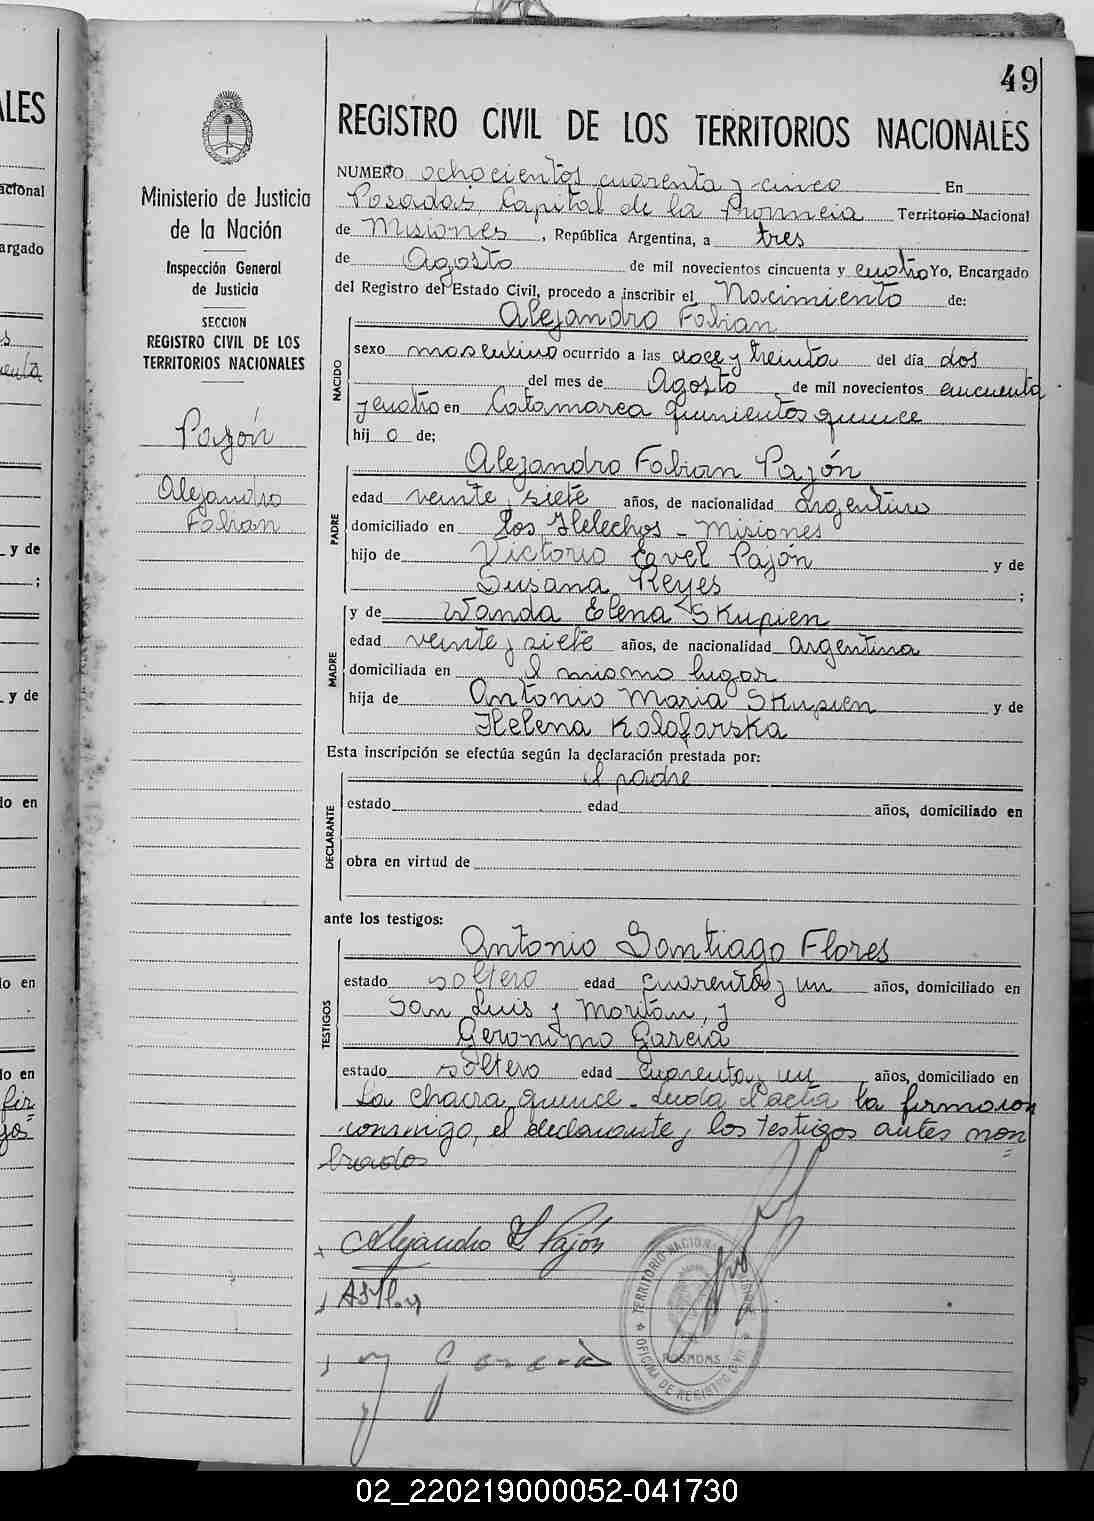 49
REGISTRO CIVIL DE LOS TERRITORIOS NACIONALES
NUMERO ochocientos cuarenta y cinco En
Posadas, Capital de la Provincia Territorio Nacional
de Misiones, República Argentina, a tres
de Agosto de mil novecientos cincuenta y cuatro Yo, Encargado
del Registro del Estado Civil, procedo a inscribir el Nacimiento de:
Alejandro Fabian
NACIDO
sexo masculino ocurrido a las doce y treinta del día dos
del mes de Agosto de mil novecientos cincuenta
y cuatro en Catamarca quinientos quince
hijo de;
PADRE
Alejandro Fabian Pajón
edad veinte y siete años, de nacionalidad argentino
domiciliado en Los Helechos - Misiones
hijo de Victorio Pajón y de
Susana Reyes ;
MADRE
y de Wanda Elena Skupien
edad veinte y siete años, de nacionalidad Argentina
domiciliada en el mismo lugar
hija de Antonio Maria Skupien y de
Helena Kolaforska
Esta inscripción se efectúa según la declaración prestada por:
el padre
DECLARANTE
estado edad años, domiciliado en
obra en virtud de
ante los testigos:
TESTIGOS
Antonio Santiago Flores
estado soltero edad cuarenta y un años, domiciliado en
San Luis y Moritan, y
Geronimo Garcia
estado soltero edad cuarenta y un años, domiciliado en
La Chacra quince. Leida el acta la firmaron
conmigo, el declarante y los testigos antes nom=
brados
Alejandro F Pajón
ASFlores
Garcia
TERRITORIO NACIONAL
OFICINA DE REGISTRO CIVIL
POSADAS
Ministerio de Justicia
de la Nación
Inspección General
de Justicia
SECCION
REGISTRO CIVIL DE LOS
TERRITORIOS NACIONALES
Pajón
Alejandro
Fabian
ALES
acional
argado
y de
;
y de
do en
do en
do en
02_220219000052-041730